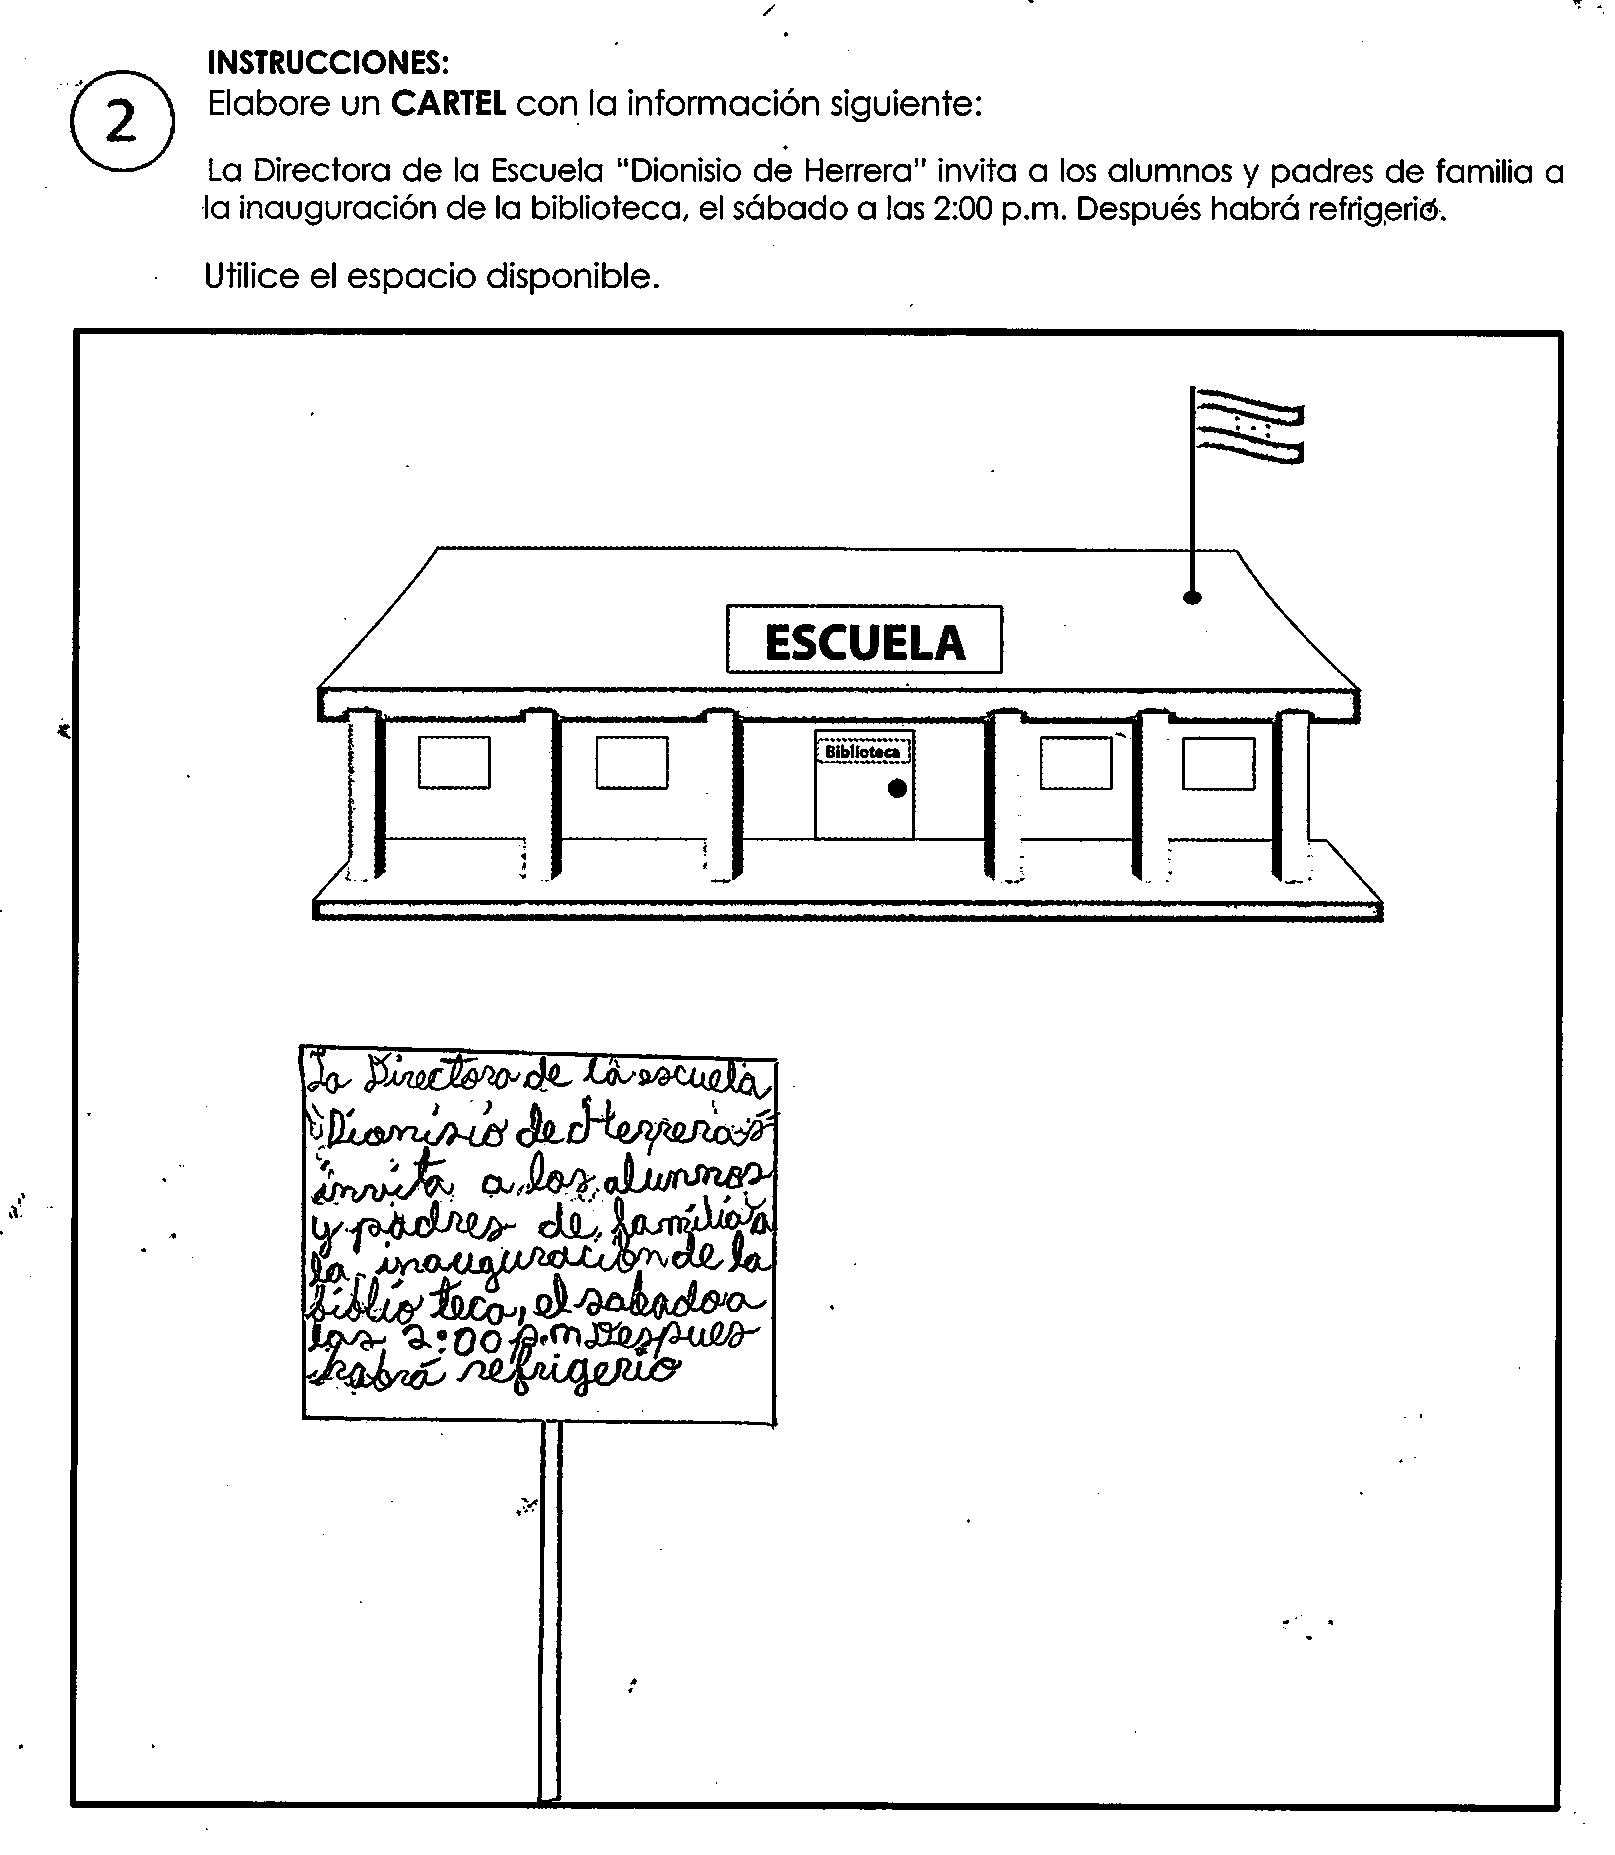 INSTRUCCIONES:
2
Elabore un CARTEL con la información siguiente:
La Directora de la Escuela "Dionisio de Herrera" invita a los alumnos y padres de familia a
la inauguración de la biblioteca, el sábado a las 2:00 p.m. Después habrá refrigerio.
Utilice el espacio disponible.
ESCUELA
Biblioteca
La Directora de la escuela
"Dionisio de Herrera"
invita a los alumnos
y padres de familia a
la inauguración de la
biblio teca, el sabado a
las 2:00 p.m Despues
habrá refrigerio